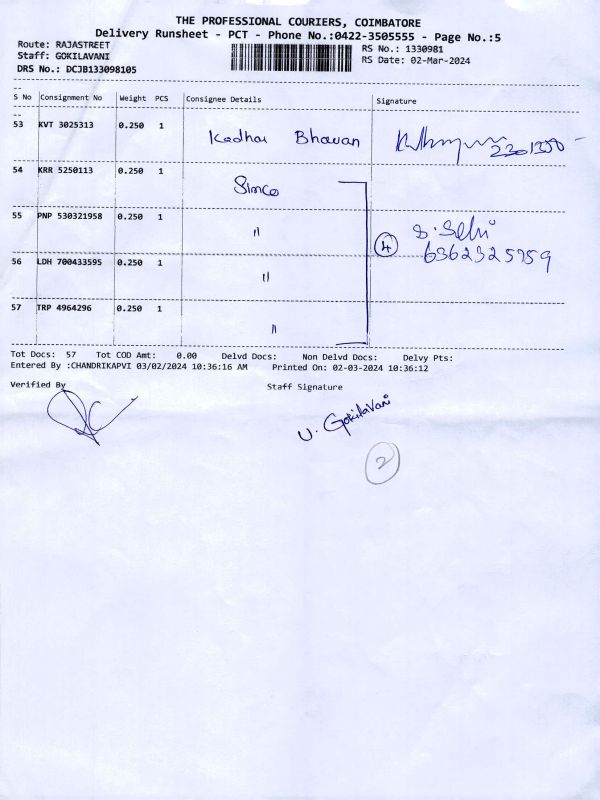 THE PROFESSIONAL COURIERS, COIMBATORE
Delivery Runsheet - PCT - Phone No.:0422-3505555 - Page No.:5
Route: RAJASTREET
Staff: GOKILAVANI
DRS No.: DCJB133098105
RS No.: 1330981
RS Date: 02-Mar-2024
S No Consignment No Weight PCS Consignee Details Signature
53 KVT 3025313 0.250 1 Kadhai Bhavan
54 KRR 5250113 0.250 1 Simco
55 PNP 530321958 0.250 1 "
4 S. Selvi
6362325959
56 LDH 700433595 0.250 1 "
57 TRP 4964296 0.250 1 "
Tot Docs: 57 Tot COD Amt: 0.00 Delvd Docs: Non Delvd Docs: Delvy Pts:
Entered By :CHANDRIKAPVI 03/02/2024 10:36:16 AM Printed On: 02-03-2024 10:36:12
Verified By Staff Signature
U. Gokilavani
2